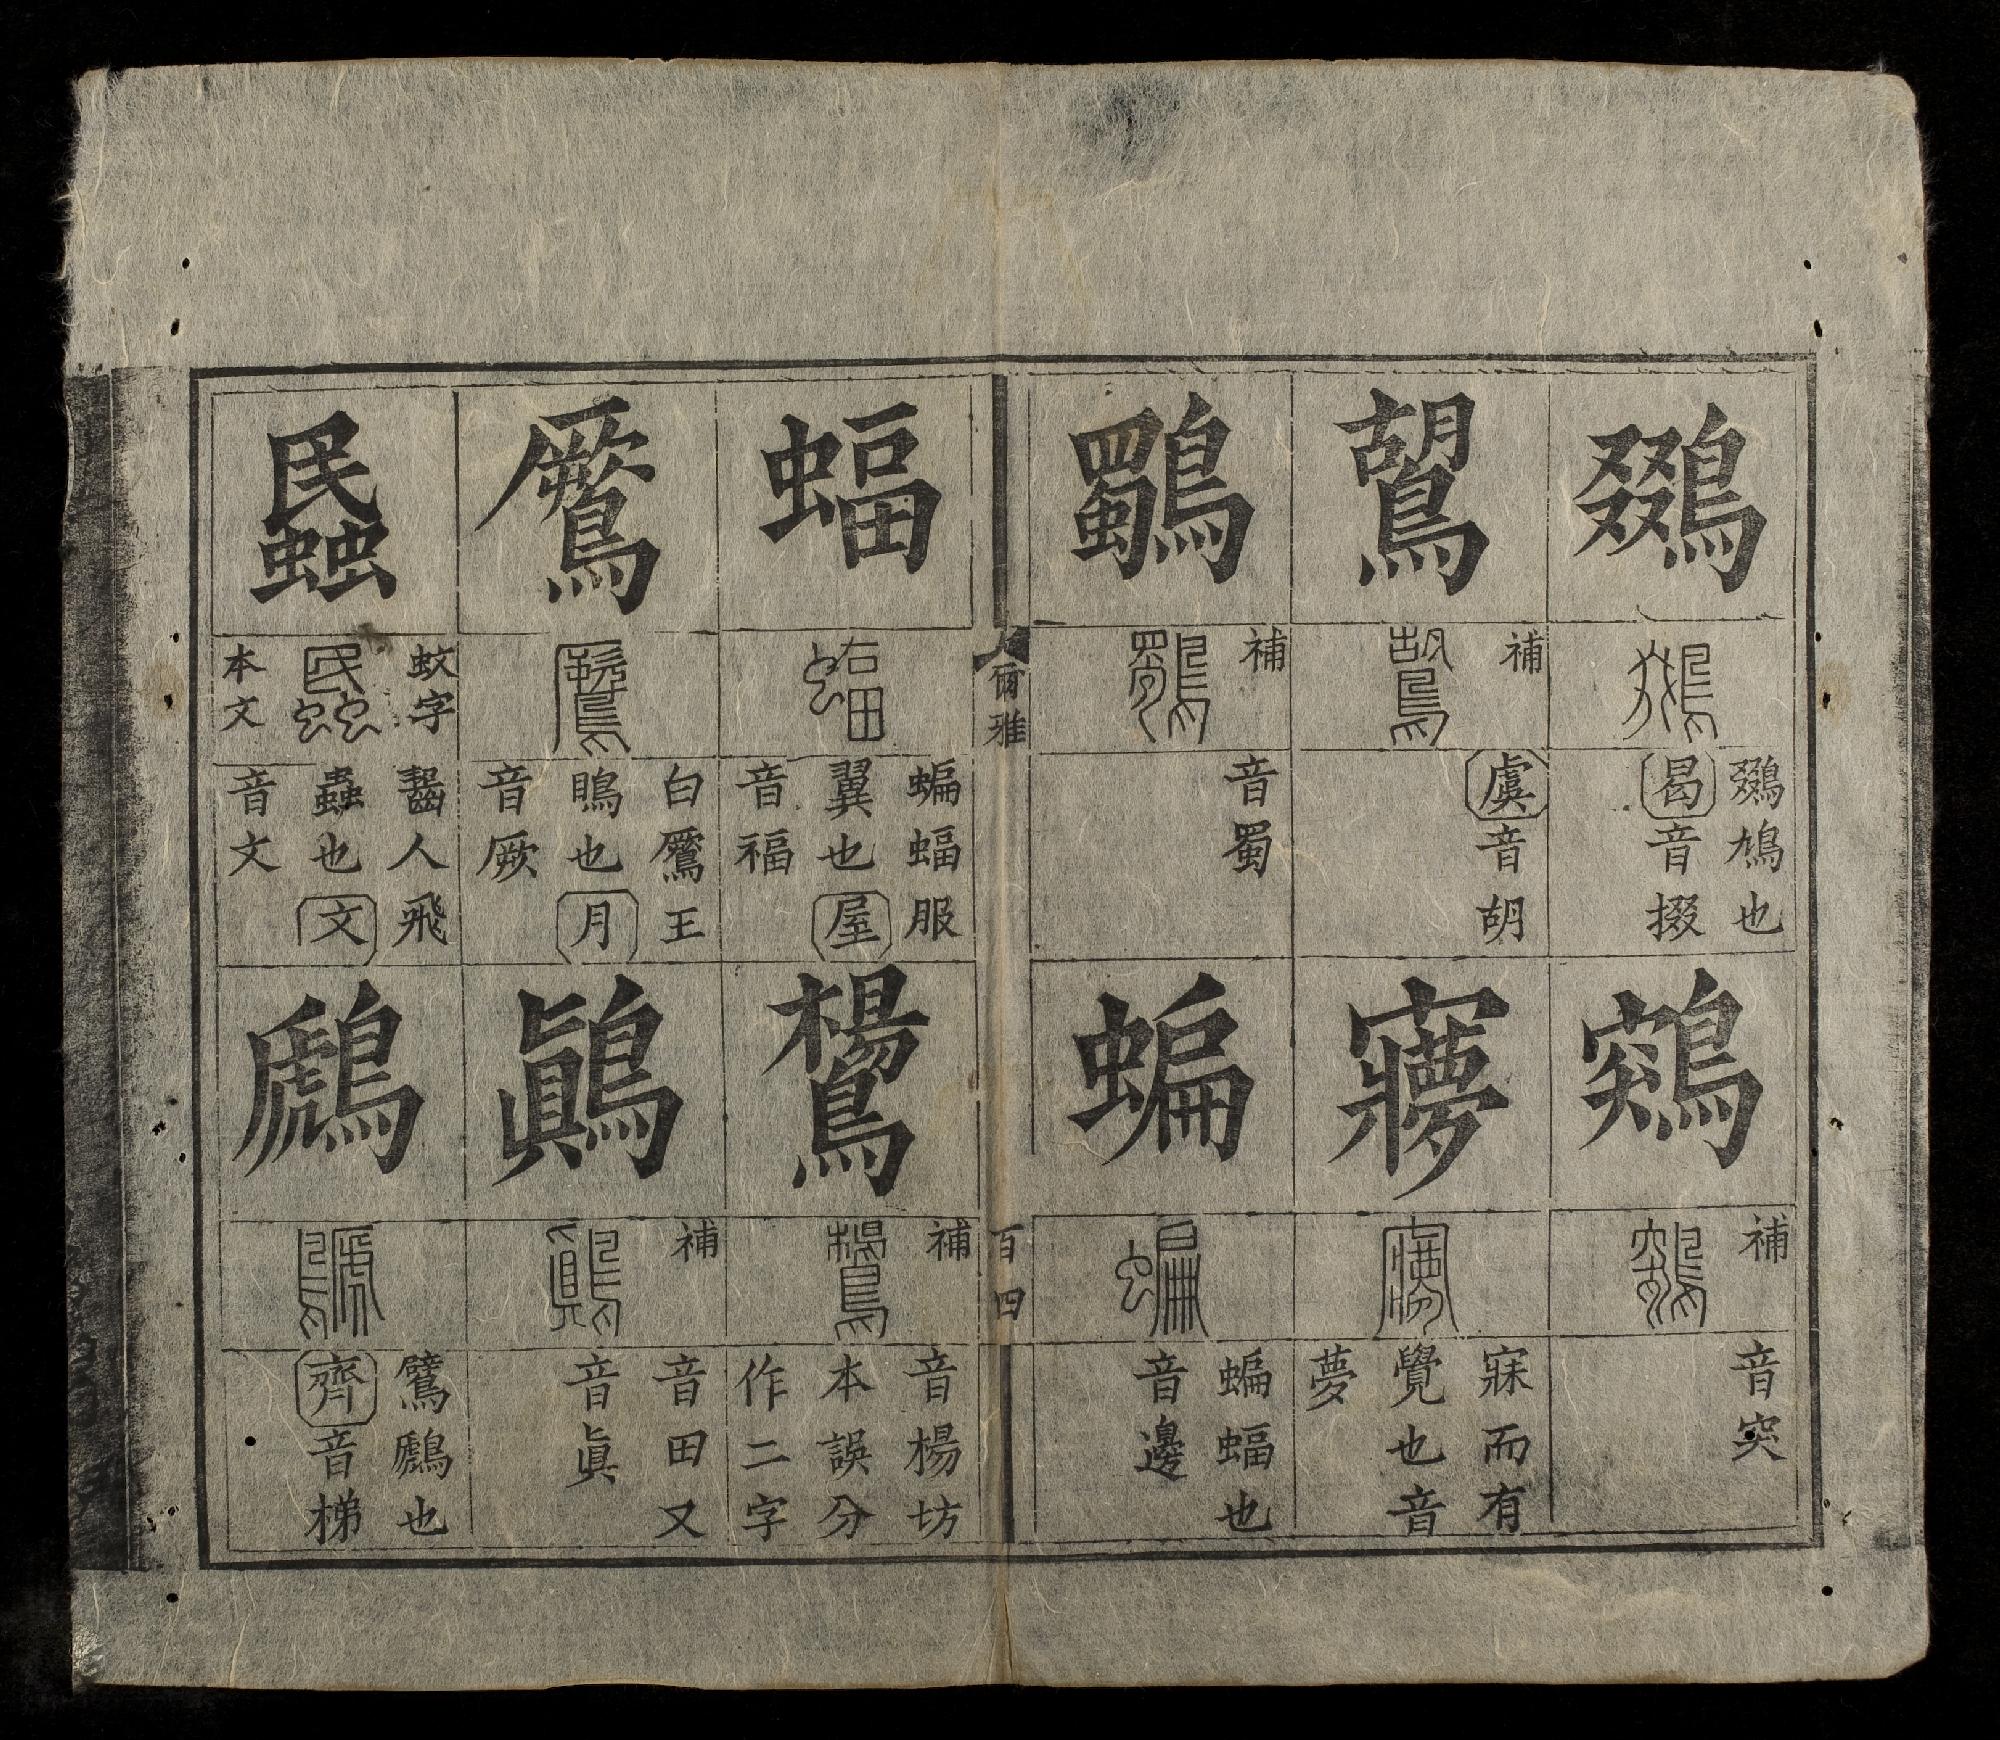 鵽
鵽鳩也
曷音掇
鶟
補
音突
鶘
補
虞音胡
㝱
寐而有
覺也音
夢
鸀
補
音蜀
蝙
蝙蝠也
音邊
爾雅
百四
蝠
蝙蝠服
翼也屋
音福
鸉
補
音楊坊
本誤分
作二字
鷢
白鷢王
鴡也月
音厥
鷏
補
音田又
音眞
蟁
蚊字
本文
齧人飛
蟲也文
音文
鷉
鷿鷉也
齊音梯